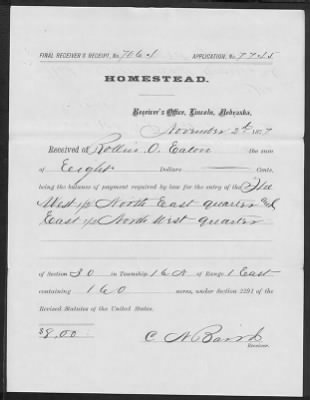 FINAL RECEIVER'S RECEIPT, No. 7064 APPLICATION, No. 7745
HOMESTEAD.
Receiver's Office, Lincoln, Nebraska,
November 2d 1877
Received of Rollin O. Eaton the sum
of Eight Dollars Cents,
being the balance of payment required by law for the entry of the
West 1/2 North East quarter and
East 1/2 North West quarter
of Section 30 in Township 16 N of Range 1 East
containing 160 acres, under Section 2291 of the
Revised Statutes of the United States.
$8.00
C. N. Baird
Receiver.